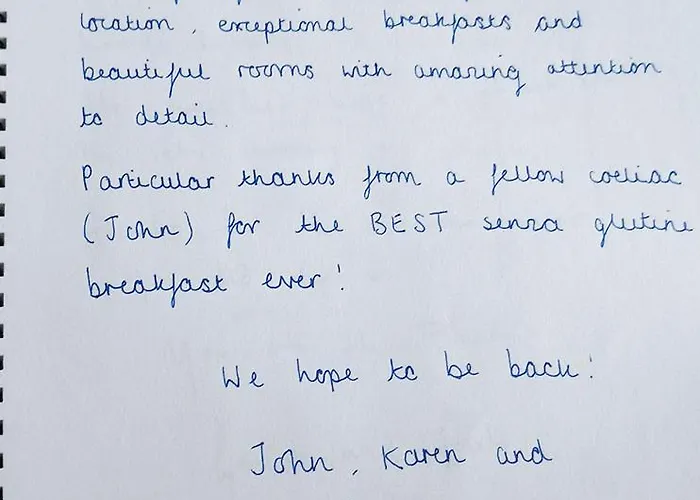 location, exceptional breakfasts and
beautiful rooms with amazing attention
to detail.
Particular thanks from a fellow coeliac
(John) for the BEST senza glutine
breakfast ever!
We hope to be back!
John, Karen and